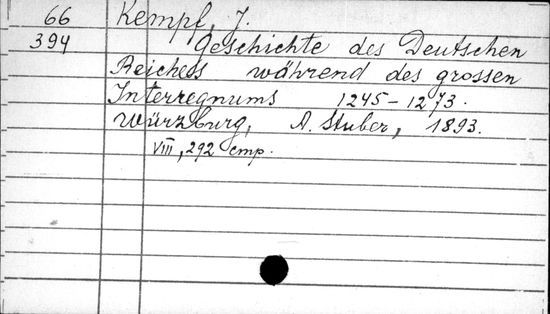 66 Kempf, J.
394 Geschichte des Deutschen
Reiches während des grossen
Interregnums 1245-1273.
Würzburg, A. Stuber, 1893.
VIII, 292 стр.